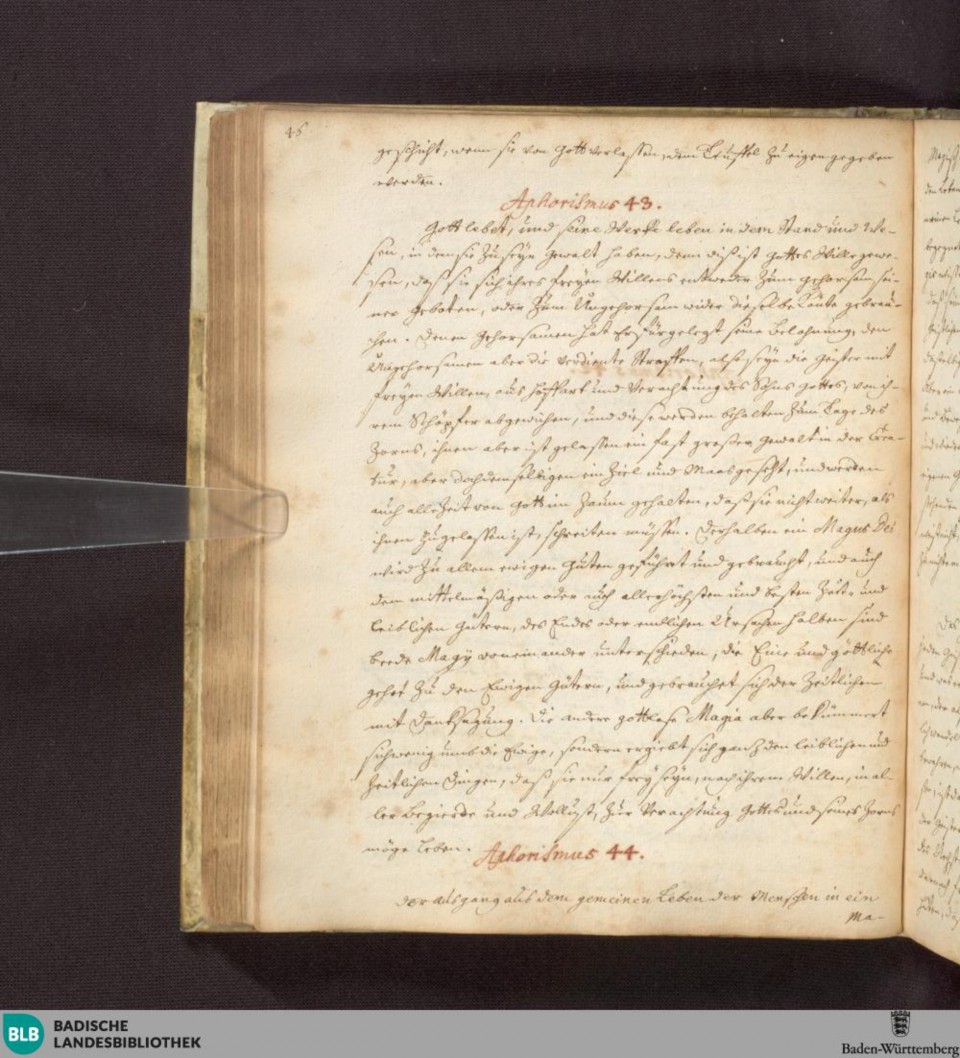 46
geschicht, wenn sie von Gott verlassen, dem Teuffel zu eigen gegeben
werden.
Aphorismus 43.
Gott lebet, und seine Werke leben in dem Stand und We-
sen, in dem sie zu seyn gewolt haben, denn diß ist Gottes Wille gewe-
sen, daß sie sich ihres freyen Willens entweder zum gehorsam sei-
ner Geboten, oder zum Ungehorsam wider dieselbe heute gebrau-
chen. Denen Gehorsamen hat Er fürgelegt seine Belohnung, den
Ungehorsamen aber die verdiente Straffen, also seyn die Geister mit
freyen Willen, aus hoffart und Verachtung des Sohns Gottes, von ih-
rem Schöpfer abgewichen, und diese werden behalten zum Tage des
Zorns, ihnen aber ist gelassen ein fast großer Gewalt in der Crea-
tur, aber doch demselbigen ein Ziel und Maas gesetzt, und werden
auch allezeit von Gott im Zaum gehalten, daß sie nicht weiter, als
ihnen zugelassen ist, schreiten müssen. Derhalben ein Magus Dei
wird zu allem ewigen Guten geführt und gebraucht, und auch
dem mittelmäßigen oder auch allerhöchsten und besten Zeit- und
leiblichen Gütern, des Endes oder endlichen Ursachen halben sind
beede Magy voneinander unterschieden, die Eine und göttliche
gehet zu den Ewigen Gütern, und gebrauchet sich der Zeitlichen
mit Danksagung. Die andere gottlose Magia aber bekümmert
sich wenig umb die Ewige, sondern ergiebt sich ganz den leiblichen und
Zeitlichen Dingen, daß sie nur frey seyn, nach ihrem Willen, in al-
ler Begierde und Wollust, zur Verachtung Gottes und seines Zorns
möge leben.
Aphorismus 44.
der ausgang aus dem gemeinen Leben der Menschen in ein
Ma-
BLB
BADISCHE
LANDESBIBLIOTHEK
Baden-Württemberg